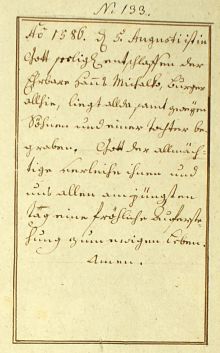 No. 133.
Aõ 1586. d 5. Augusti ist in
Gott selig entschlaffen der
Ehrbare Hanß Michalk, burger
allhie, liegt alda samt zweyen
Söhnen und einer tochter be-
graben. Gott der allmäch-
tige verleihe ihnen und
uns allen am jüngsten
tag eine fröhliche Aufferste-
hung zum ewigen Leben.
Amen.